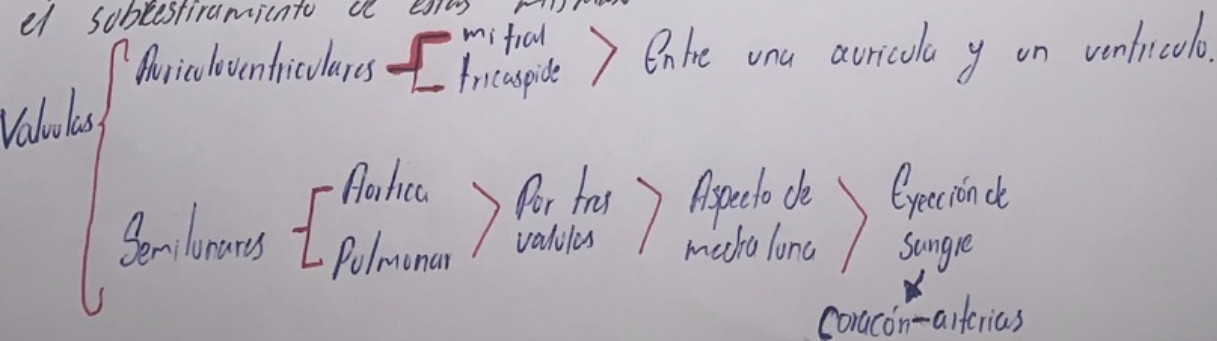 el sobrestiramiento de estas mismas
Valvulas
Auriculoventriculares
mitral
tricuspide
Entre una auricula y un ventriculo.
Semilunares
Aortica
Pulmonar
Por tres
valvulas
Aspecto de
media luna
Eyección de
sangre
Corazón-arterias